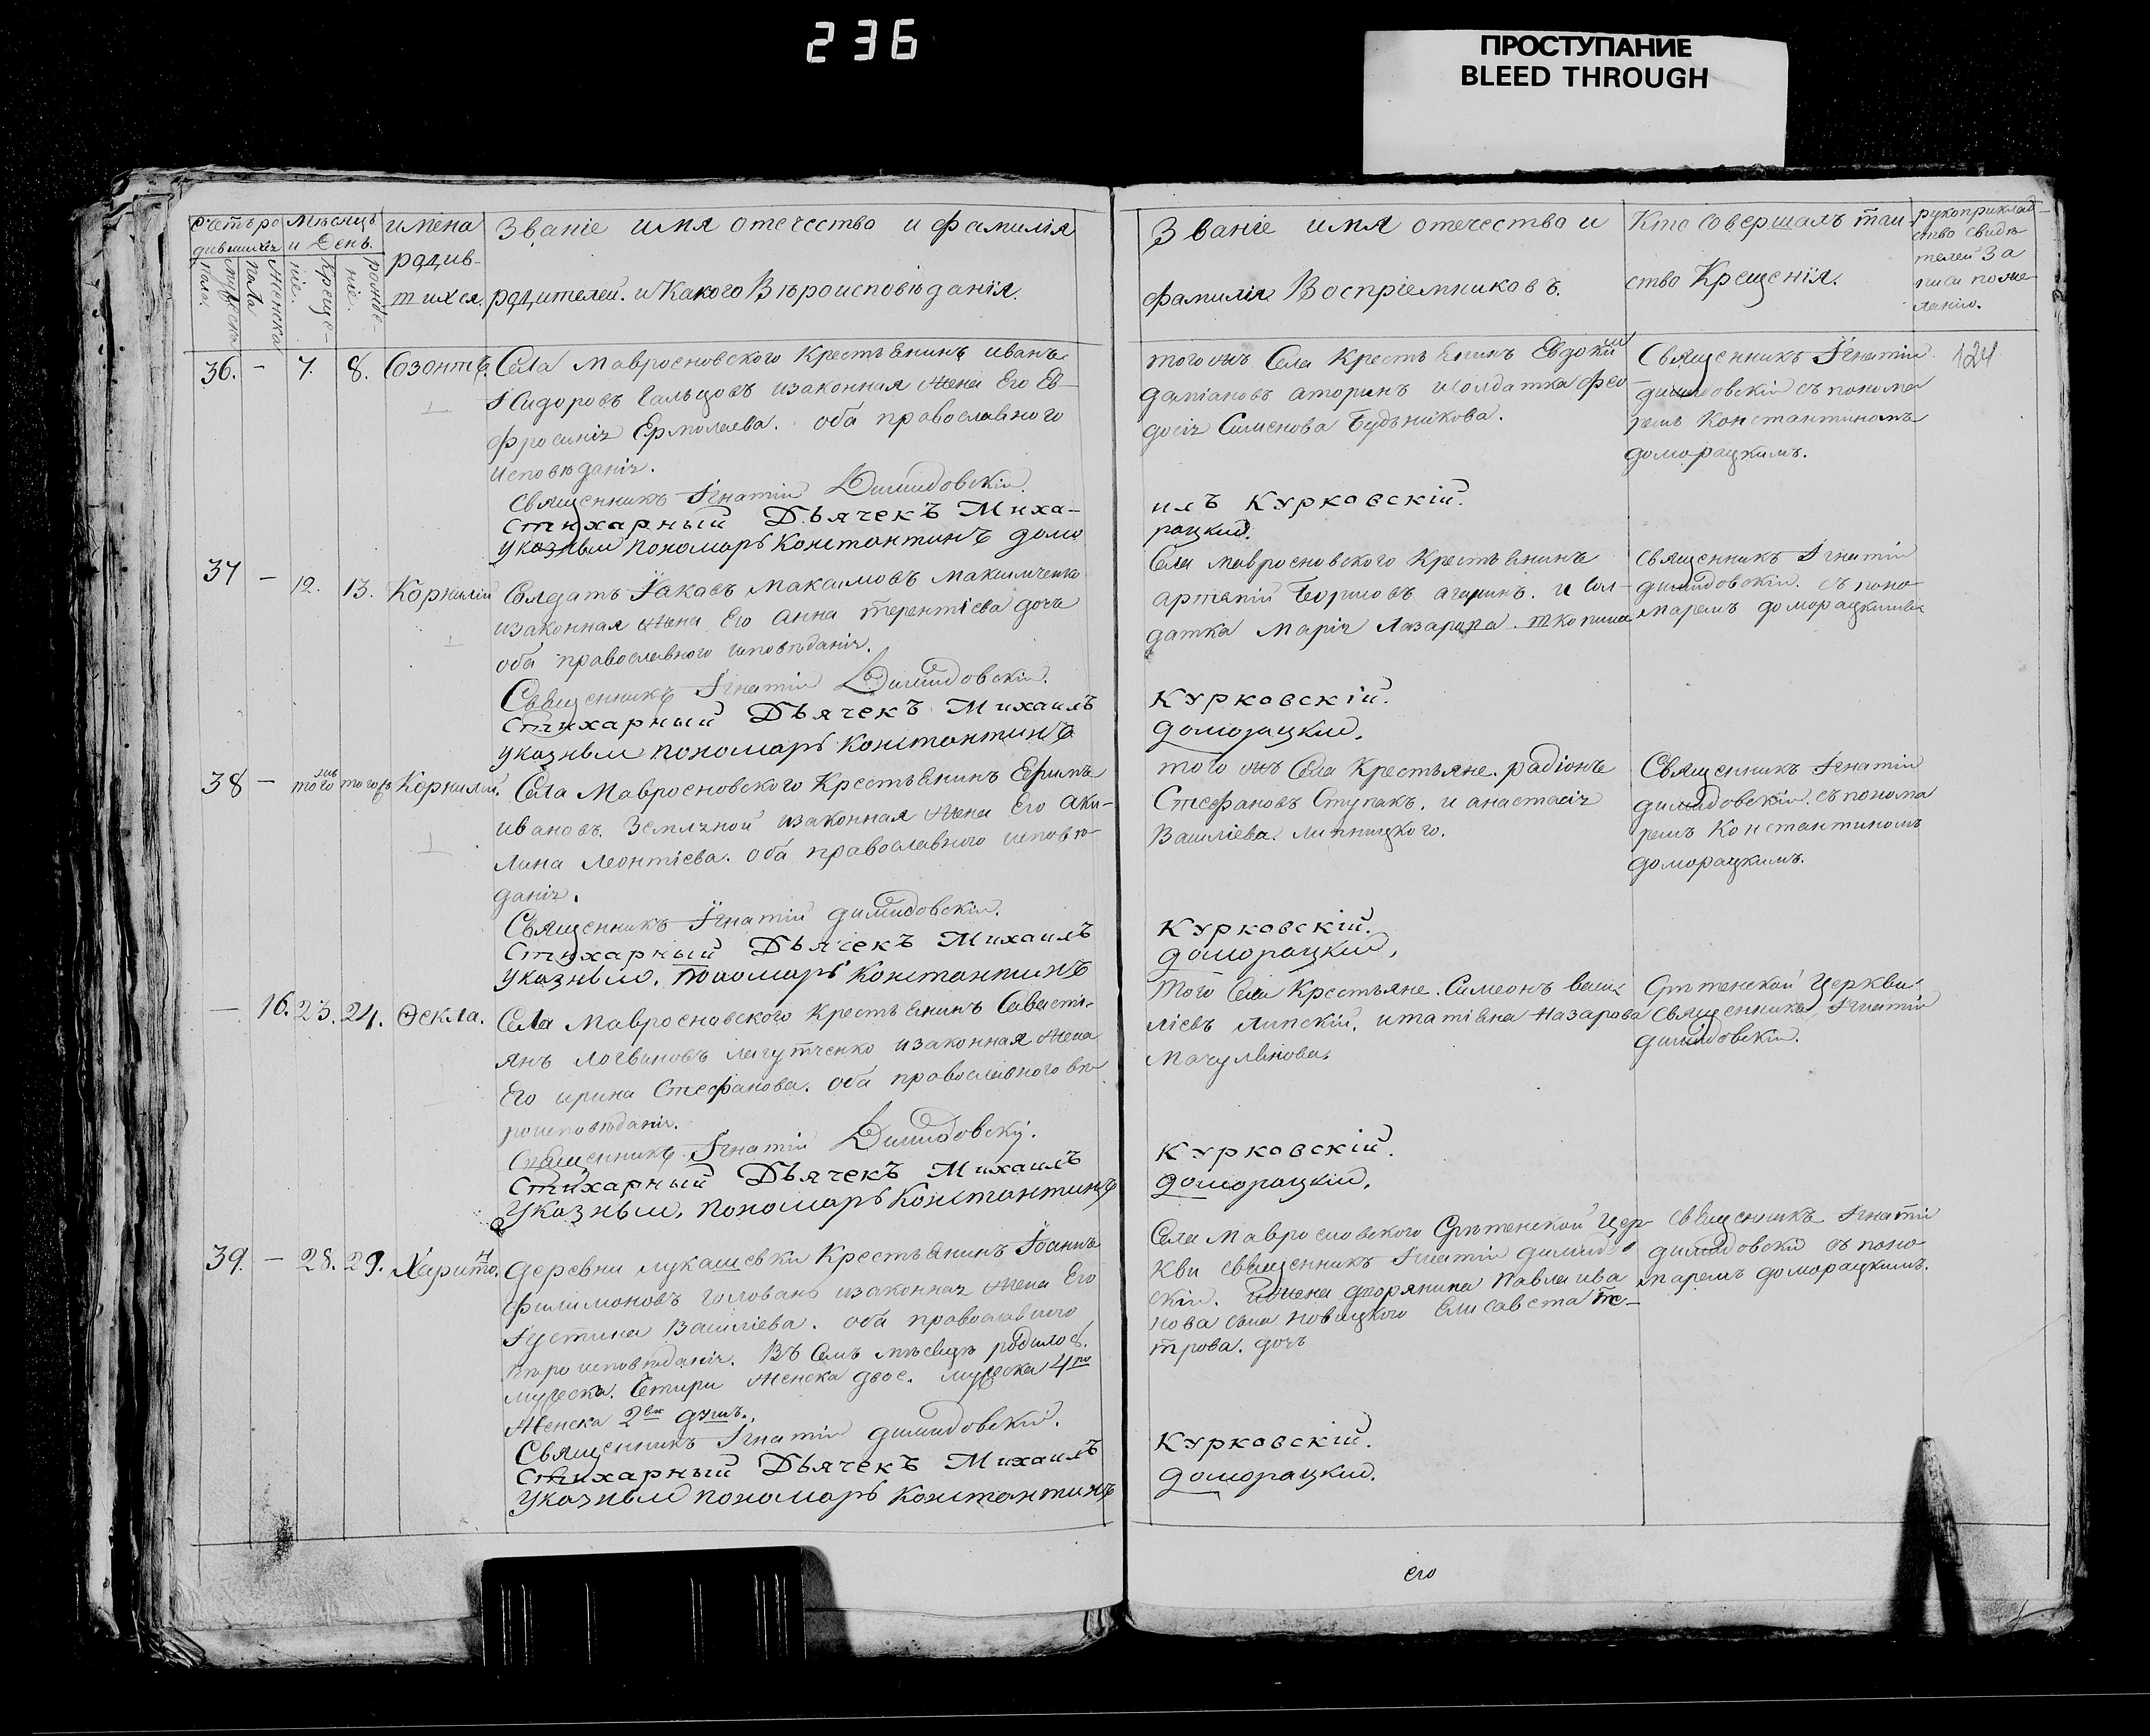 236
ПРОСТУПАНИЕ
BLEED THROUGH
имена
родив-
шихся.
Званіе имя отечество и фамилія
родителей. и Какого Вѣроисповѣданія.
Званіе имя отечество и
фамилія Воспріемниковъ.
Кто совершалъ таи-
ство Крещенія.
рукоприклад-
ство свидѣ
телей За
писи по же
ланію.
36. - 7. 8. Созонтъ.
Села Мавросновского Крестьянинъ иванъ
Исидоровъ Гальцовъ изаконная жена Его Ев-
фросинія Ермолаева. оба православного
исповѣданія.
Священникъ Ігнатій Димидовскій.
Стихарный Дьячекъ Миха-
указный пономарь Константинъ домо
того жъ Села Крестьянинъ Евдоким
даміановъ аторинъ исолдатка Фео-
досія Симеонова Будьникова.
илъ Курковскій.
рацкий.
Священникъ Ігнатій
димидовскій съ понома
ремъ Константиномъ
доморацкимъ.
124
37 - 12. 13. Корнилій
Солдатъ Іаковъ Максимовъ Максимченко
изаконная жена Его анна терентіева дочь
оба православного исповѣданія.
Священникъ Ігнатій Димидовскій.
Стихарный Дьячекъ Михаилъ
указный пономарь Константинъ
Села мавросновского Крестьянинъ
артемій Борисовъ
и сол-
датка Марія Лазарова
Курковскій.
доморацкий.
священникъ Ігнатій
димидовскій. съ поно-
маремъ доморацкимъ
38 - того того жъ Корнилій.
Села Мавросновского Крестьянинъ Ефимъ
ивановъ. Земляной изаконная жена Его аки-
лина леонтіева. оба православного исповѣ-
данія.
Священникъ Ігнатій димидовскій.
Стихарный Дьячекъ Михаилъ
указный. пономарь Константинъ
того жъ Села Крестьяне. радіонъ
Стефановъ Ступакъ. и анастасія
Василіева. липницкого.
Курковскій.
доморацкий,
Священникъ Ігнатій
димидовскій. съ понома
ремъ Константиномъ
доморацкимъ.
- 16. 23. 24. Ѳекла.
Села Мавросновского Крестьянинъ Савасті-
янъ Логвиновъ лагутченко изаконная жена
Его ирина Стефанова. оба православного вѣ
роисповѣданія.
Священникъ Ігнатій Димидовскій.
Стихарный Дьячекъ Михаилъ
Указный, пономарь Константинъ
Того Села Крестьяне. Симеонъ васи-
ліевъ Липскій, итатіяна Назарова
Мачулянова.
Курковскій.
доморацкій.
Срѣтенской Церкви
Священникъ Ігнатій
димидовскій.
39. - 28. 29. Харитонъ.
Деревни лукашевки Крестьянинъ Іоаннъ
филимоновъ головань изаконная жена Его
Іустина Василіева. оба православного
вѣроисповѣданія. Въ Семъ мѣсяцѣ родилось.
мужеска. Четыри женска двое. мужеска 4ро
женска 2вѣ душъ.
Священникъ Ігнатій димидовскій.
Стихарный Дьячекъ Михаилъ
Указный пономарь Константинъ
Села Мавросновского Срѣтенской Цер-
кви священникъ Ігнатій димидов
скій. ижена дворянина Павла ива
нова сына новицкого Елисавета пе-
трова. дочь
Курковскій.
доморацкий.
священникъ Ігнатій
димидовскій съ поно-
маремъ доморацкимъ.
его